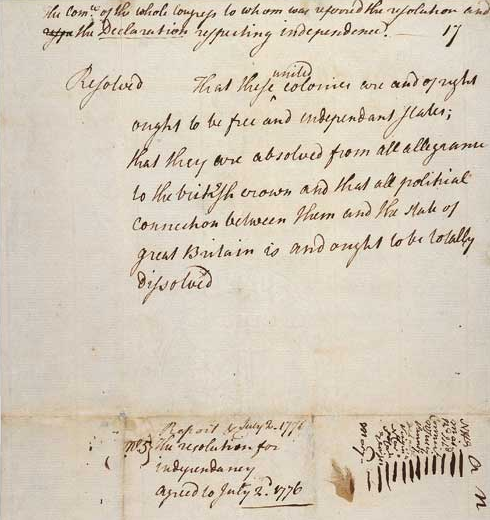 The comtee of the whole Congress to whom was referred the resolution and
respe the Declaration respecting independence. — 17
Resolved That these united colonies are and of right
ought to be free and independant states;
that they are absolved from all allegiance
to the british crown and that all political
connection between them and the state of
great Britain is and ought to be totally
dissolved
Report &c July 2. 1776
No. 5} the resolution for
independancy
agreed to July 2d. 1776